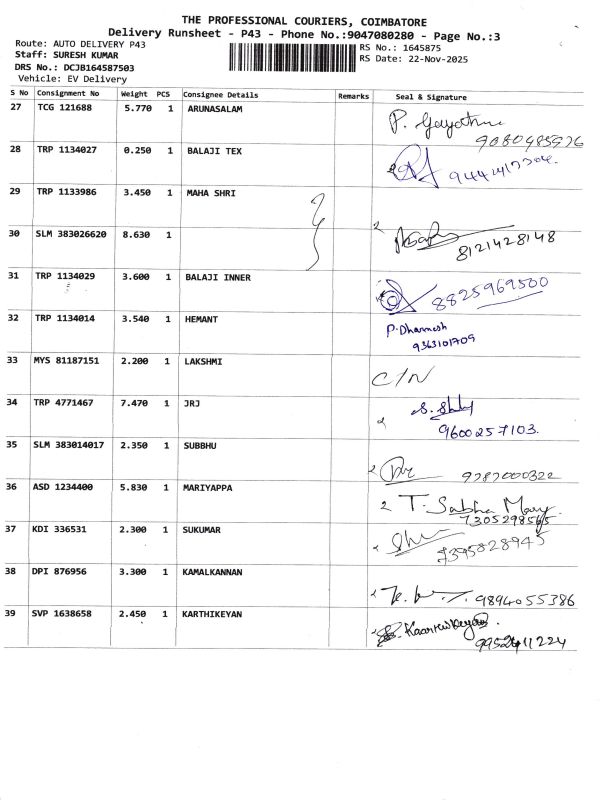 THE PROFESSIONAL COURIERS, COIMBATORE
Delivery Runsheet - P43 - Phone No.:9047080280 - Page No.:3
Route: AUTO DELIVERY P43
Staff: SURESH KUMAR
DRS No.: DCJB164587503
Vehicle: EV Delivery
RS No.: 1645875
RS Date: 22-Nov-2025
S No Consignment No Weight PCS Consignee Details Remarks Seal & Signature
27 TCG 121688 5.770 1 ARUNASALAM P. Gayathri
9080485976
28 TRP 1134027 0.250 1 BALAJI TEX
29 TRP 1133986 3.450 1 MAHA SHRI
30 SLM 383026620 8.630 1 8121428148
31 TRP 1134029 3.600 1 BALAJI INNER 8825969500
32 TRP 1134014 3.540 1 HEMANT P. Dharmesh
9363101709
33 MYS 81187151 2.200 1 LAKSHMI C/N
34 TRP 4771467 7.470 1 JRJ
9600257103.
35 SLM 383014017 2.350 1 SUBBHU 9787000322
36 ASD 1234400 5.830 1 MARIYAPPA T. Sabha Mary
7305298565
37 KDI 336531 2.300 1 SUKUMAR 7395828945
38 DPI 876956 3.300 1 KAMALKANNAN 9894055386
39 SVP 1638658 2.450 1 KARTHIKEYAN